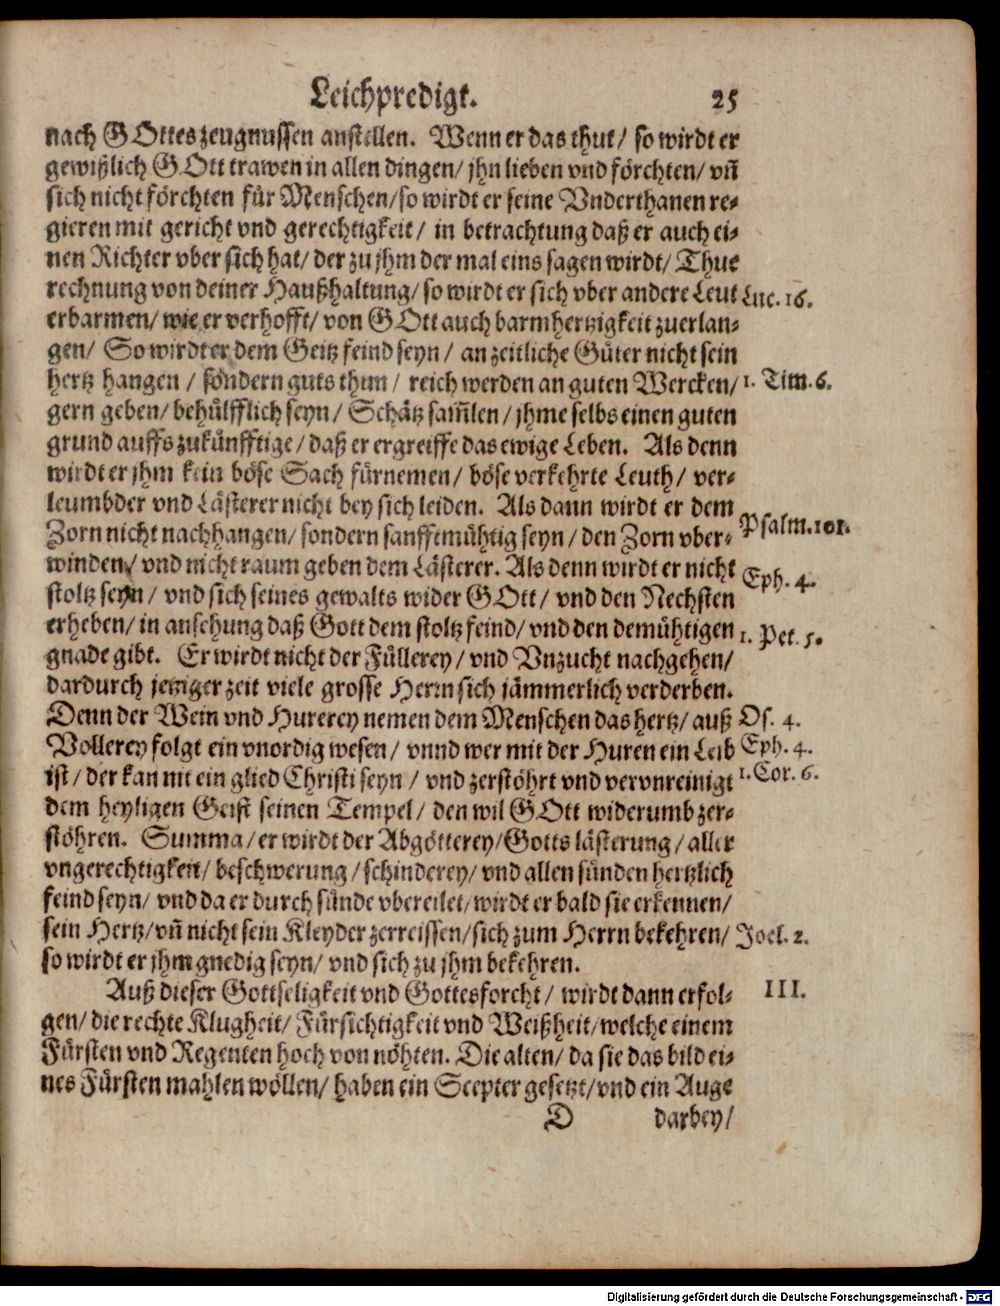 Leichpredigt. 25
nach GOttes zeugnussen anstellen. Wenn er das thut/ so wirdt er
gewißlich GOtt trawen in allen dingen/ jhn lieben vnd förchten/ vñ
sich nicht förchten für Menschen/ so wirdt er seine Vnderthanen re-
gieren mit gericht vnd gerechtigkeit/ in betrachtung daß er auch ei-
nen Richter vber sich hat/ der zu jhm der mal eins sagen wirdt/ Thue
rechnung von deiner Haußhaltung/ so wirdt er sich vber andere Leut Luc. 16.
erbarmen/ wie er verhofft/ von GOtt auch barmhertzigkeit zuerlan-
gen/ So wirdt er dem Geitz feind seyn/ an zeitliche Güter nicht sein
hertz hangen / sondern guts thun/ reich werden an guten Wercken/ 1. Tim. 6.
gern geben/ behülfflich seyn/ Schätz sam̃len/ jhme selbs einen guten
grund auffs zukünfftige/ daß er ergreiffe das ewige Leben. Als denn
wirdt er jhm kein böse Sach fürnemen/ böse verkehrte Leuth/ ver-
leumbder vnd Lästerer nicht bey sich leiden. Als dann wirdt er dem
Zorn nicht nachhangen/ sondern sanfftmühtig seyn/ den Zorn vber- Psalm. 101.
winden/ vnd nicht raum geben dem Lästerer. Als denn wirdt er nicht
stoltz seyn/ vnd sich seines gewalts wider GOtt/ vnd den Nechsten Eph. 4.
erheben/ in ansehung daß Gott dem stoltz feind/ vnd den demühtigen 1. Pet. 5.
gnade gibt. Er wirdt nicht der Füllerey/ vnd Vnzucht nachgehen/
dardurch jeniger zeit viele grosse Herrn sich jämmerlich verderben.
Denn der Wein vnd Hurerey nemen dem Menschen das hertz/ auß Os. 4.
Vollerey folgt ein vnordig wesen/ vnnd wer mit der Huren ein Leib Eph. 4.
ist/ der kan nit ein glied Christi seyn / vnd zerstöhrt vnd vervnreinigt 1. Cor. 6.
dem heyligen Geist seinen Tempel/ den wil GOtt widerumb zer-
stöhren. Summa/ er wirdt der Abgötterey/ Gotts lästerung/ aller
vngerechtigkeit/ beschwerung/ schinderey/ vnd allen sünden hertzlich
feind seyn/ vnd da er durch sünde vbereilet/ wirdt er bald sie erkennen/
sein Hertz/ vñ nicht sein Kleyder zerreissen/ sich zum Herrn bekehren/ Joel. 2.
so wirdt er jhm gnedig seyn/ vnd sich zu jhm bekehren.
Auß dieser Gottseligkeit vnd Gottesforcht/ wirdt dann erfol- III.
gen/ die rechte Klugheit/ Fürsichtigkeit vnd Weißheit/ welche einem
Fürsten vnd Regenten hoch von nöhten. Die alten/ da sie das bild ei-
nes Fürsten mahlen wöllen/ haben ein Scepter gesetzt/ vnd ein Auge
D darbey/
Digitalisierung gefördert durch die Deutsche Forschungsgemeinschaft - DFG